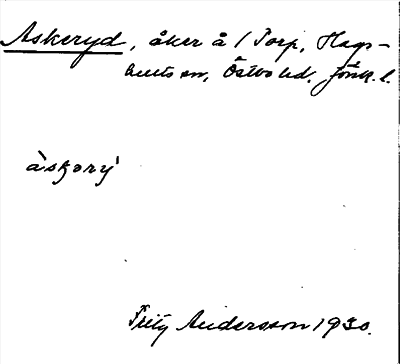 Askeryd, åker å 1 Torp, Hags-
hults sn, Östbo hd. Jönk. l.
àskəry`
Fritz Andersson 1930.